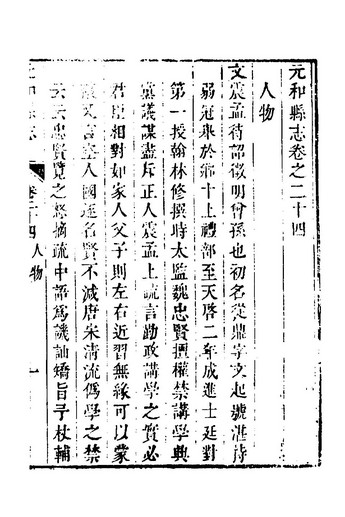 元和縣志卷之二十四
人物
文震孟待詔徵明曾孫也初名從鼎字文起號湛持
弱冠舉於鄉十上禮部至天啓二年成進士廷對
第一授翰林修撰時太監魏忠賢擅權禁講學興
黨議謀盡斥正人震孟上疏言勤政講學之實必
君臣相對如家人父子則左右近習無緣可以蒙
又言空人國逐名賢不減唐宋清流僞學之禁
云云忠賢覽之怒摘疏中語爲譏訕矯旨予杖輔
元和縣志 卷二十四 人物 一